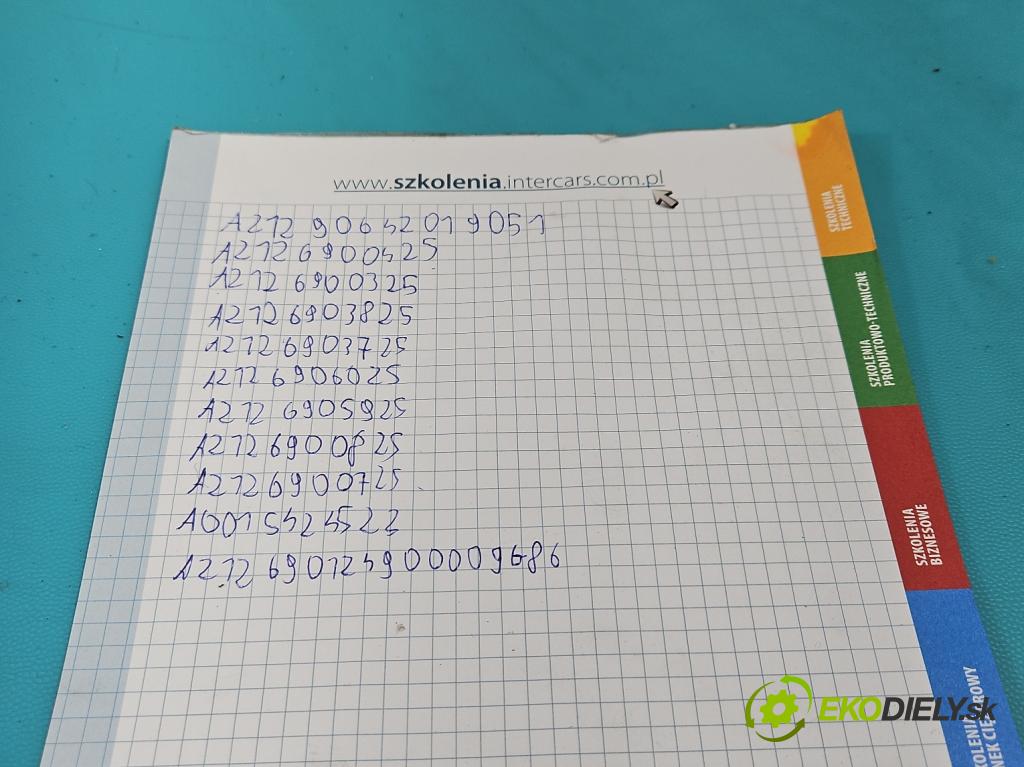 www.szkolenia.intercars.com.pl
A212 9064201 9051
A212 6900425
A212 6900325
A212 6903825
A212 6903725
A212 6906025
A212 6905925
A212 6900825
A212 6900725
A0015424522
A212 690124900009686
SZKOLENIA
TECHNICZNE
SZKOLENIA
PRODUKTOWO-TECHNICZNE
SZKOLENIA
BIZNESOWE
EKODIELY.sk